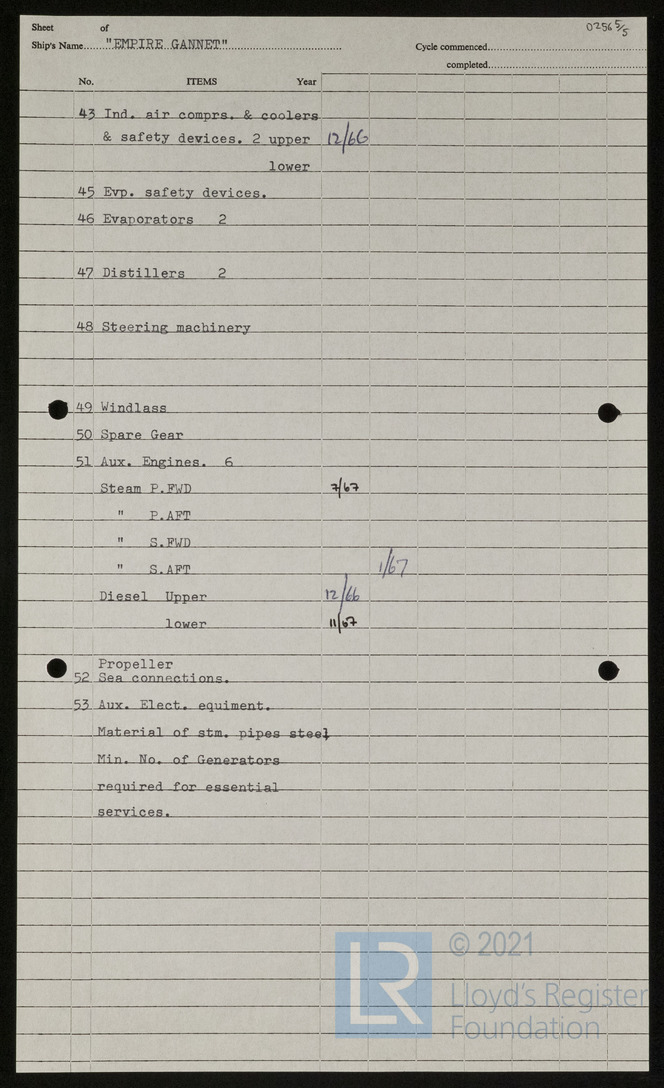 Sheet of 0256 5/5
Ship's Name "EMPIRE GANNET" Cycle commenced
completed
No. ITEMS Year
43 Ind. air comprs. & coolers
& safety devices. 2 upper 12/66
lower
45 Evp. safety devices.
46 Evaporators 2
47 Distillers 2
48 Steering machinery
49 Windlass
50 Spare Gear
51 Aux. Engines. 6
Steam P.FWD 7/67
" P.AFT
" S.FWD
" S.AFT 1/67
Diesel Upper 12/66
lower 11/67
Propeller
52 Sea connections.
53 Aux. Elect. equiment.
Material of stm. pipes steel
Min. No. of Generators
required for essential
services.
LR © 2021
Lloyd's Register
Foundation